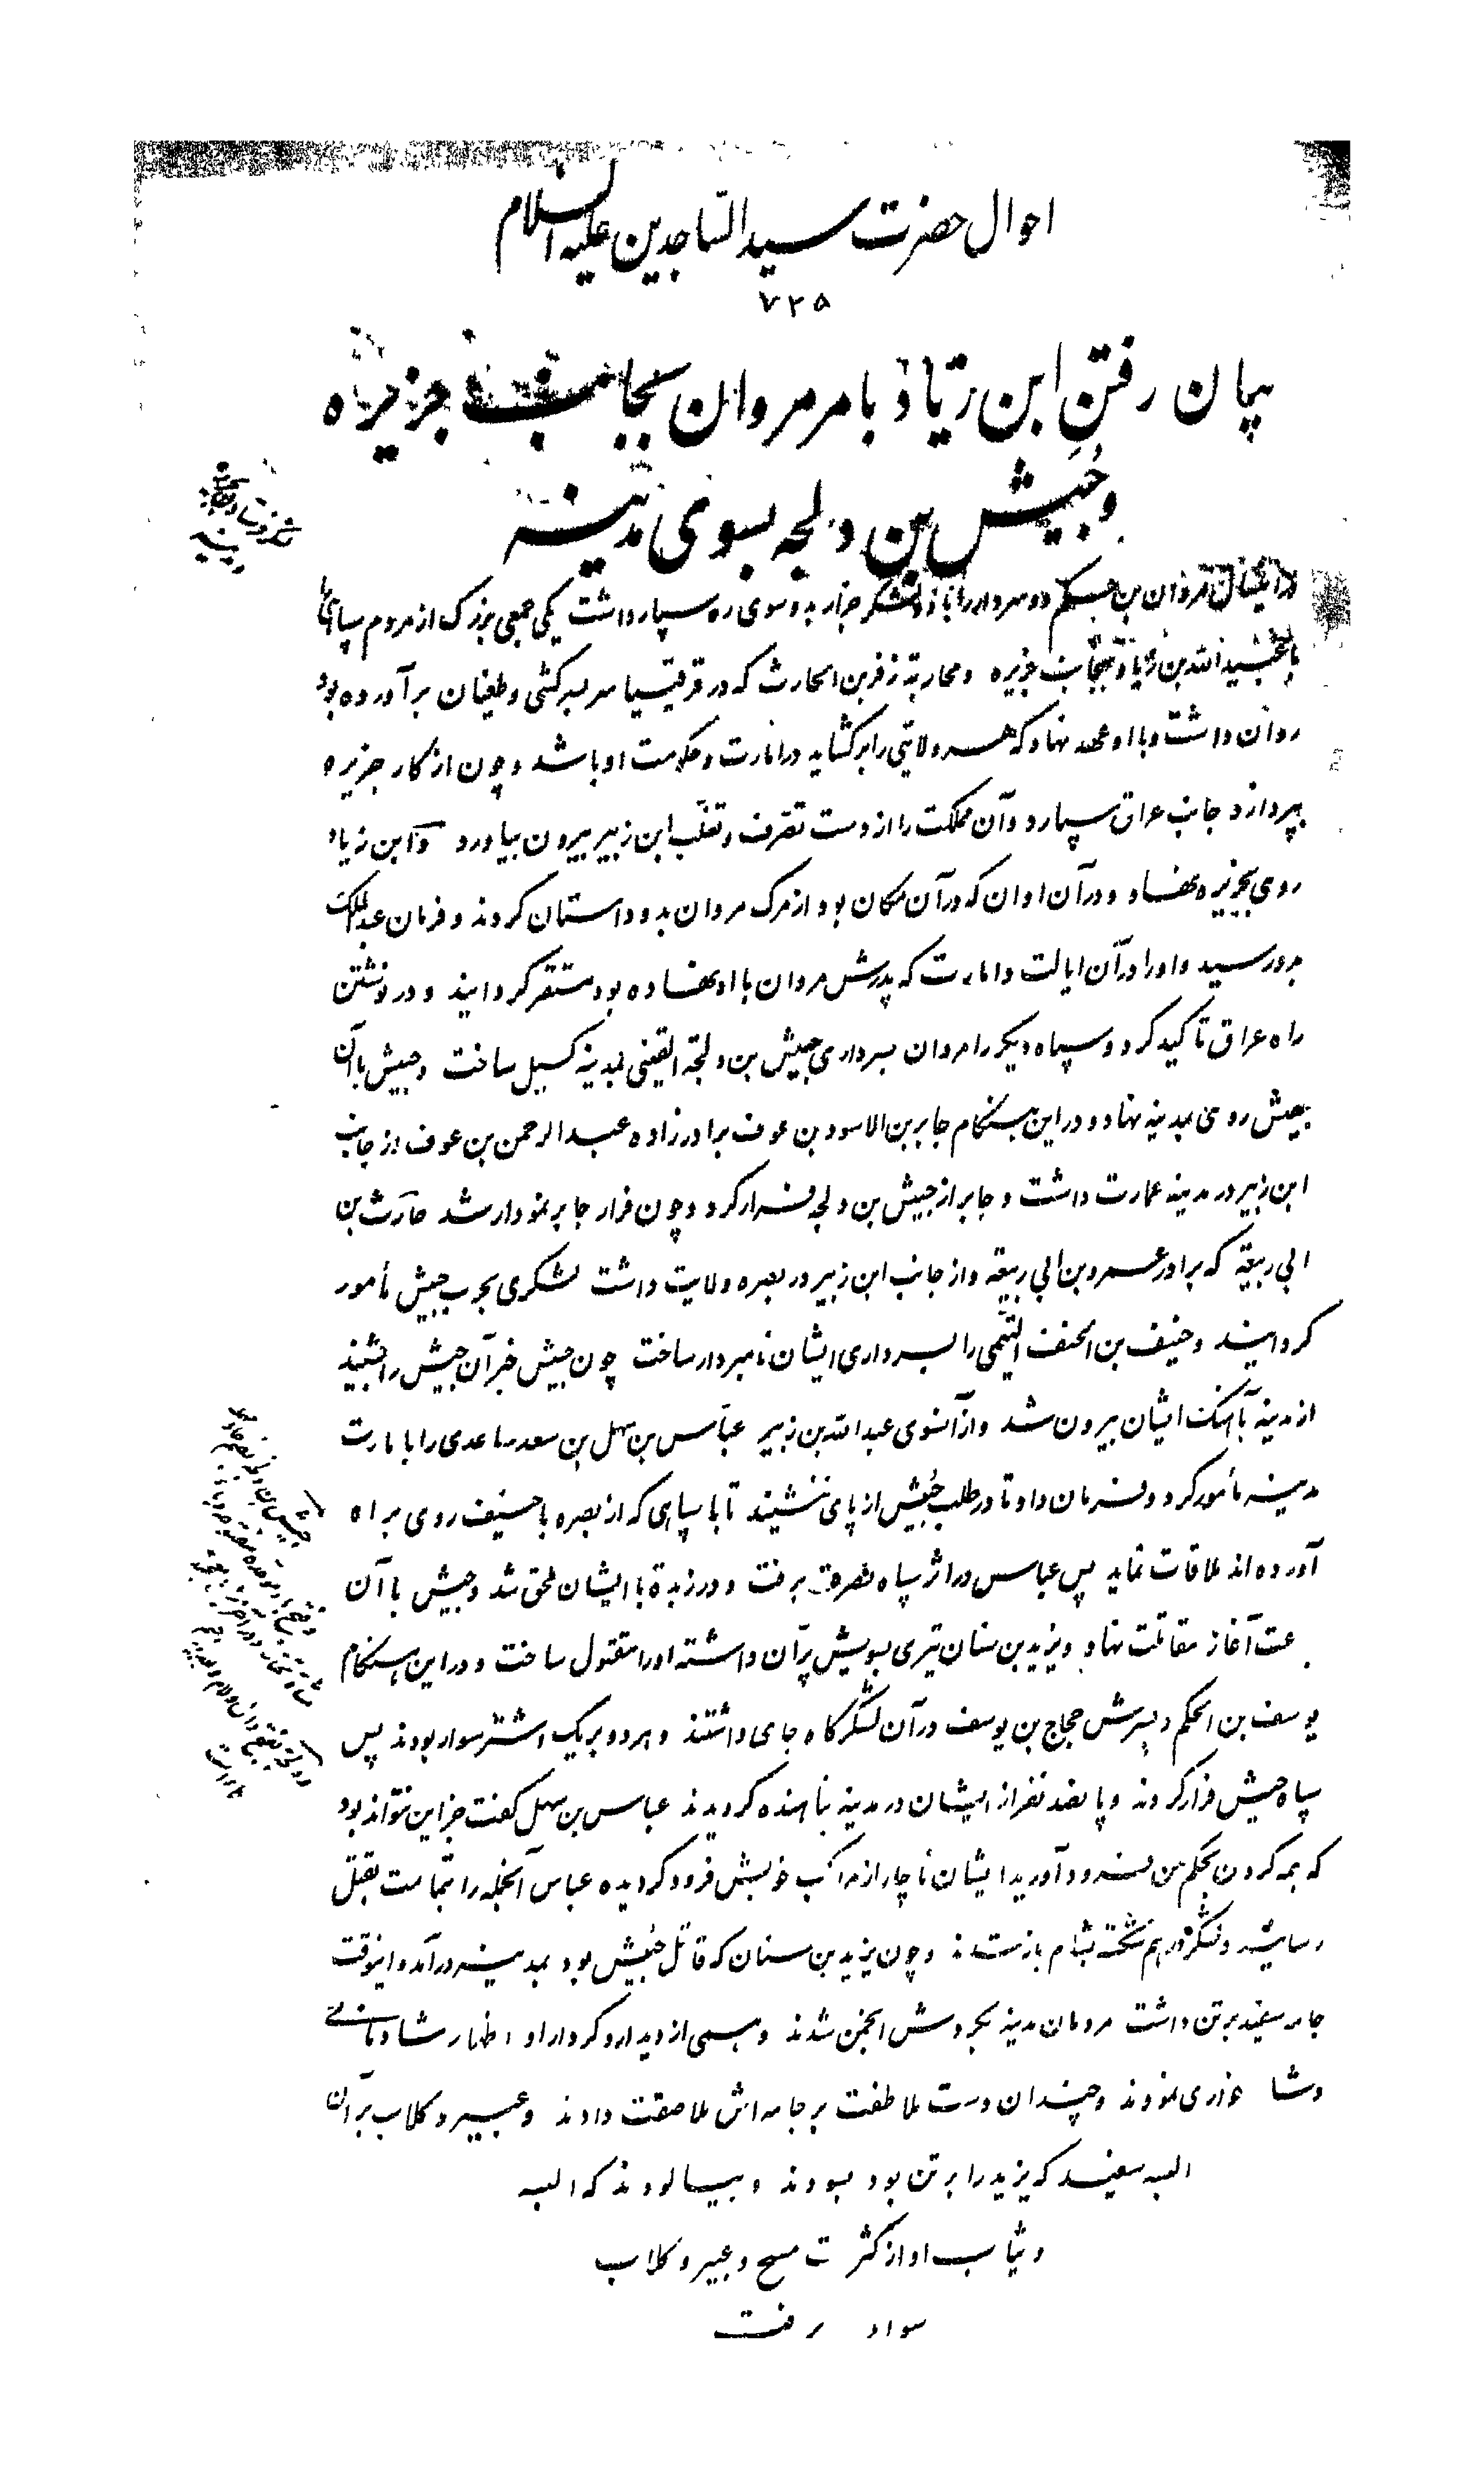 احوال حضرت سید الساجدین علیه السلام
۷۲۵
بیان رفتن ابن زیاد بامر مروان بجانب جزیره
و حُبَیش بن دلجه بسوی مدینه
در اینسال مروان بن حکم دو سردار را با دو لشکر جرار بدو سوی ره سپار داشت یکی جمعی بزرگ از مردم سپاهی
با عبید الله بن زیاد بجانب جزیره و محاربة زفر بن الحارث که در قرقیسیا سر بسرکشی و طغیان برآورده بود
روان داشت و با او عهد نهاد که هر ولایتی را برگشاید در امارت و حکومت او باشد و چون از کار جزیره
بپردازد جانب عراق سپارد و آن مملکت را از دست تصرف و تغلّب ابن زبیر بیرون بیاورد و ابن زیاد
روی بجزیره نهاد و در آن اوان که در آن مکان بود از مرک مروان بدو داستان کردند و فرمان عبدالملک
بدو رسید و او را در آن ایالت و امارت که پدرش مروان با او نهاده بود مستقر گردانید و در نوشتن
راه عراق تاکید کرد و سپاه دیگر را مروان بسرداری حبیش بن دلجة القینی بمدینه گسیل ساخت و حبیش با آن
جیش روی بمدینه نهاد و در این هنگام جابر بن الاسود بن عوف برادرزاده عبد الرحمن بن عوف از جانب
ابن زبیر در مدینه عمارت داشت و جابر از حبیش بن دلجه فرار کرد و چون فرار جابر نمودار شد حارث بن
ابی ربیعة که برادر عمرو بن ابی ربیعة و از جانب ابن زبیر در بصره ولایت داشت لشکری بحرب حبیش مأمور
گردانید و حنیف بن الحنف التیمی را بسرداری ایشان نامبردار ساخت چون حبیش خبر آن جیش را بشنید
از مدینه بآهنک ایشان بیرون شد و از آنسوی عبدالله بن زبیر عباس بن سهل بن سعد ساعدی را بامارت
مدینه مأمور کرد و فرمان داد تا در طلب حُبَیش از پای ننشیند تا با سپاهی که از بصره با حنیف روی براه
آورده‌اند ملاقات نماید پس عباس در اثر سپاه بصره برفت و در زبدة با ایشان ملحق شد و حبیش با آن
جماعت آغاز مقاتلت نهاد و یزید بن سنان تیری بسویش پرّان داشته او را مقتول ساخت و در این هنگام
یوسف بن الحکم و پسرش حجاج بن یوسف در آن لشکرگاه جای داشتند و هر دو بر یک اشتر سوار بودند پس
سپاه حبیش فرار کردند و پانصد نفر از ایشان در مدینه پناهنده گردیدند عباس بن سهل گفت جز این نتواند بود
که همه گردن بحکم من فرود آورید ایشان ناچار از مراکب خویش فرود گردیده عباس آنجمله را بتمامت بقتل
رسانید و لشکر درهم شکسته بشام باز شدند و چون یزید بن سنان که قاتل حُبَیش بود بمدینه درآمد و اینوقت
جامه سفید برتن داشت مردمان مدینه بگردش انجمن شدند و همی از دیدار و کردار او اظهار شادمانی
و شا خواری نمودند و چندان دست ملاطفت بر جامه‌اش ملاصقت دادند و عبیر و کلاب بر آن
البسه سفید که یزید را برتن بود بسودند و بیالودند که البسه
و ثیاب او از کثرت مسح و عبیر و کلاب
سواد رفت